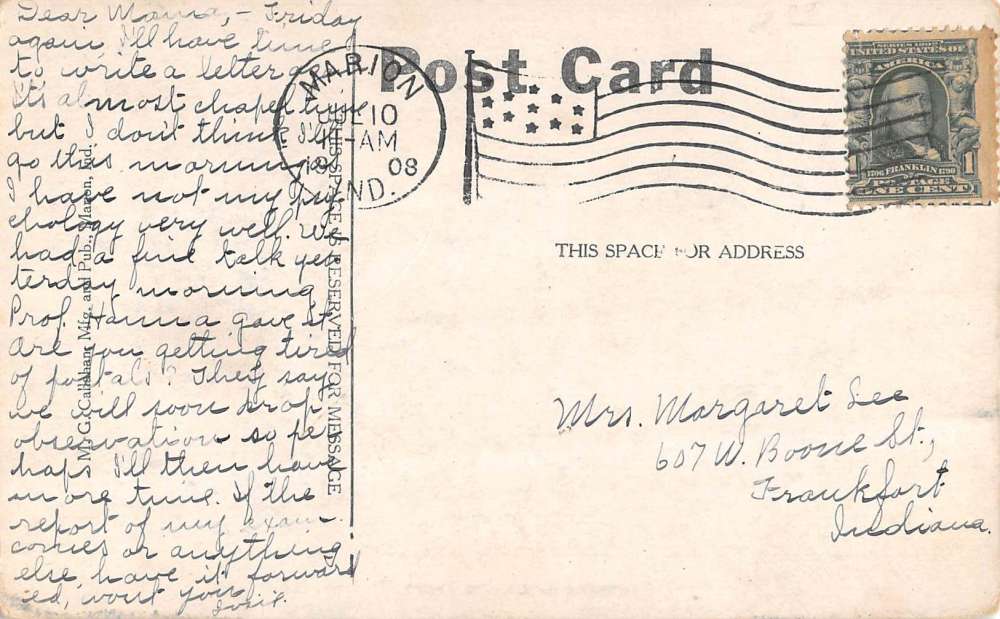 Dear Mama, - Friday
again I'll have time
to write a letter
It's almost chapel time
but I don't think I'll
go this morning.
I have not my psy-
chology very well. We
had a fine talk yes-
terday morning.
Prof. Hanna gave it.
Are you getting tired
of postals? They say
we will soon drop
observation so per-
haps I'll then have
more time. If the
report of my exam.
comes or anything
else, have it forward
ed, won't you.
M. G. Callahan, Mfg. and Pub., Marion, Ind.
THIS SPACE IS RESERVED FOR MESSAGE
Post Card
MARION
10
AM
1908
IND.
SERIES 1902
UNITED STATES OF
AMERICA
1706 FRANKLIN 1790
1
ONE CENT
THIS SPACE FOR ADDRESS
Mrs. Margaret Lee
607 W. Boone St.,
Frankfort
Indiana.